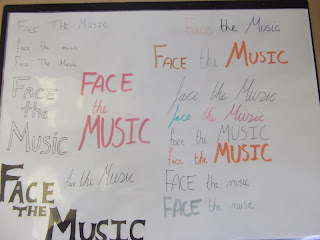 FACE THE MUSIC
face the music
Face The Music
FACE
the
MUSIC
FACE
the
MUSIC
FACE
THE
MUSIC
for the Music
Face the Music
FACE the MUSIC
face the Music
face the Music
face the MUSIC
face the MUSIC
FACE the music
FACE the music